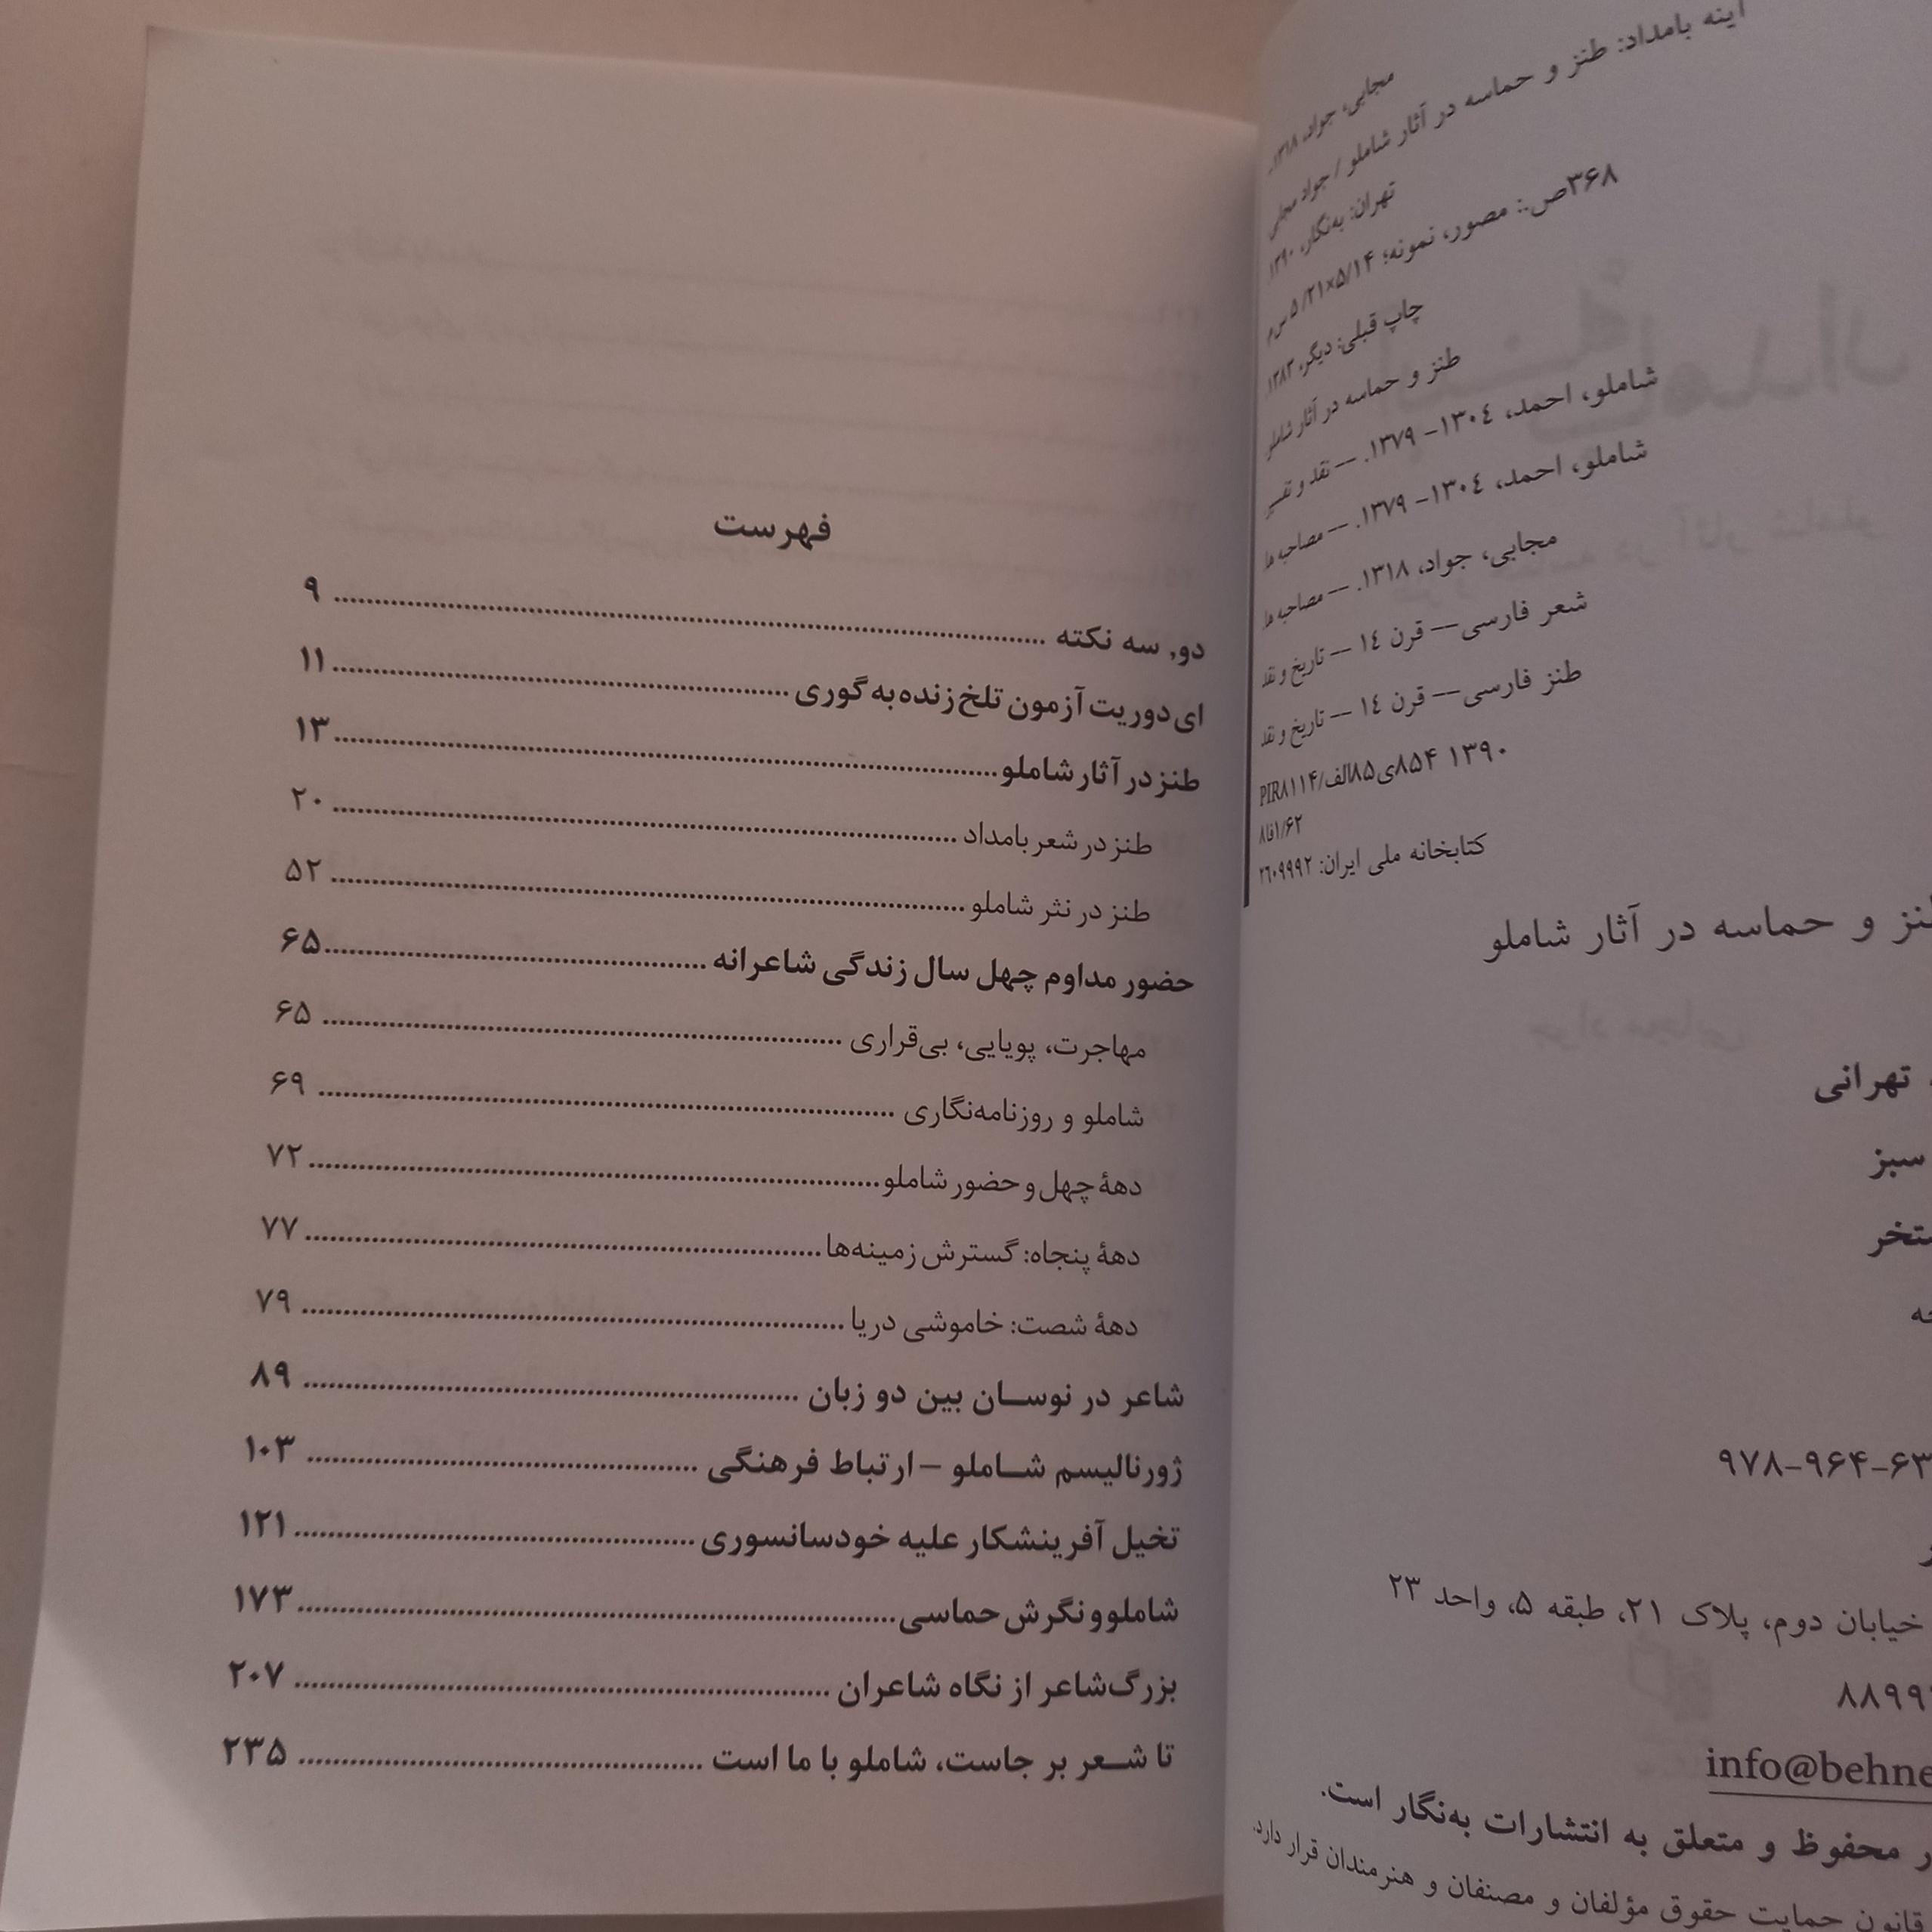 آینه بامداد: طنز و حماسه در آثار شاملو / جواد مجابی
مجابی، جواد، ۱۳۱۸.
تهران: به‌نگار، ۱۳۹۰
۳۶۸ص.: مصور، نمونه؛ ۵/۱۴×۵/۲۱ س‌م
چاپ قبلی: دیگر، ۱۳۸۳
طنز و حماسه در آثار شاملو
شاملو، احمد، ۱۳۰٤- ۱۳۷۹. -- نقد و تفسیر
شاملو، احمد، ۱۳۰٤- ۱۳۷۹. -- مصاحبه ها
مجابی، جواد، ۱۳۱۸. -- مصاحبه ها
شعر فارسی-- قرن ۱٤ -- تاریخ و نقد
طنز فارسی-- قرن ۱٤ -- تاریخ و نقد
۱۳۹۰ ۸۵۴ی۸۵الف/PIR۸۱۱۴
۸فا۱/۶۲
کتابخانه ملی ایران: ۲٦۰۹۹۹۲
طنز و حماسه در آثار شاملو
تهرانی
سبز
۹۷۸-۹۶۴-۶۳
خیابان دوم، پلاک ۲۱، طبقه ۵، واحد ۲۳
۸۸۹۹
info@behne
محفوظ و متعلق به انتشارات به‌نگار است.
قانون حمایت حقوق مؤلفان و مصنفان و هنرمندان قرار دارد.
فهرست
دو, سه نکته ........ ۹
ای دوریت آزمون تلخ زنده به گوری ........ ۱۱
طنز در آثار شاملو ........ ۱۳
طنز در شعر بامداد ........ ۲۰
طنز در نثر شاملو ........ ۵۲
حضور مداوم چهل سال زندگی شاعرانه ........ ۶۵
مهاجرت، پویایی، بی‌قراری ........ ۶۵
شاملو و روزنامه‌نگاری ........ ۶۹
دههٔ چهل و حضور شاملو ........ ۷۲
دههٔ پنجاه: گسترش زمینه‌ها ........ ۷۷
دههٔ شصت: خاموشی دریا ........ ۷۹
شاعر در نوسـان بین دو زبان ........ ۸۹
ژورنالیسم شـاملو – ارتباط فرهنگی ........ ۱۰۳
تخیل آفرینشکار علیه خودسانسوری ........ ۱۲۱
شاملو و نگرش حماسی ........ ۱۷۳
بزرگ‌شاعر از نگاه شاعران ........ ۲۰۷
تا شـعر بر جاست، شاملو با ما است ........ ۲۳۵